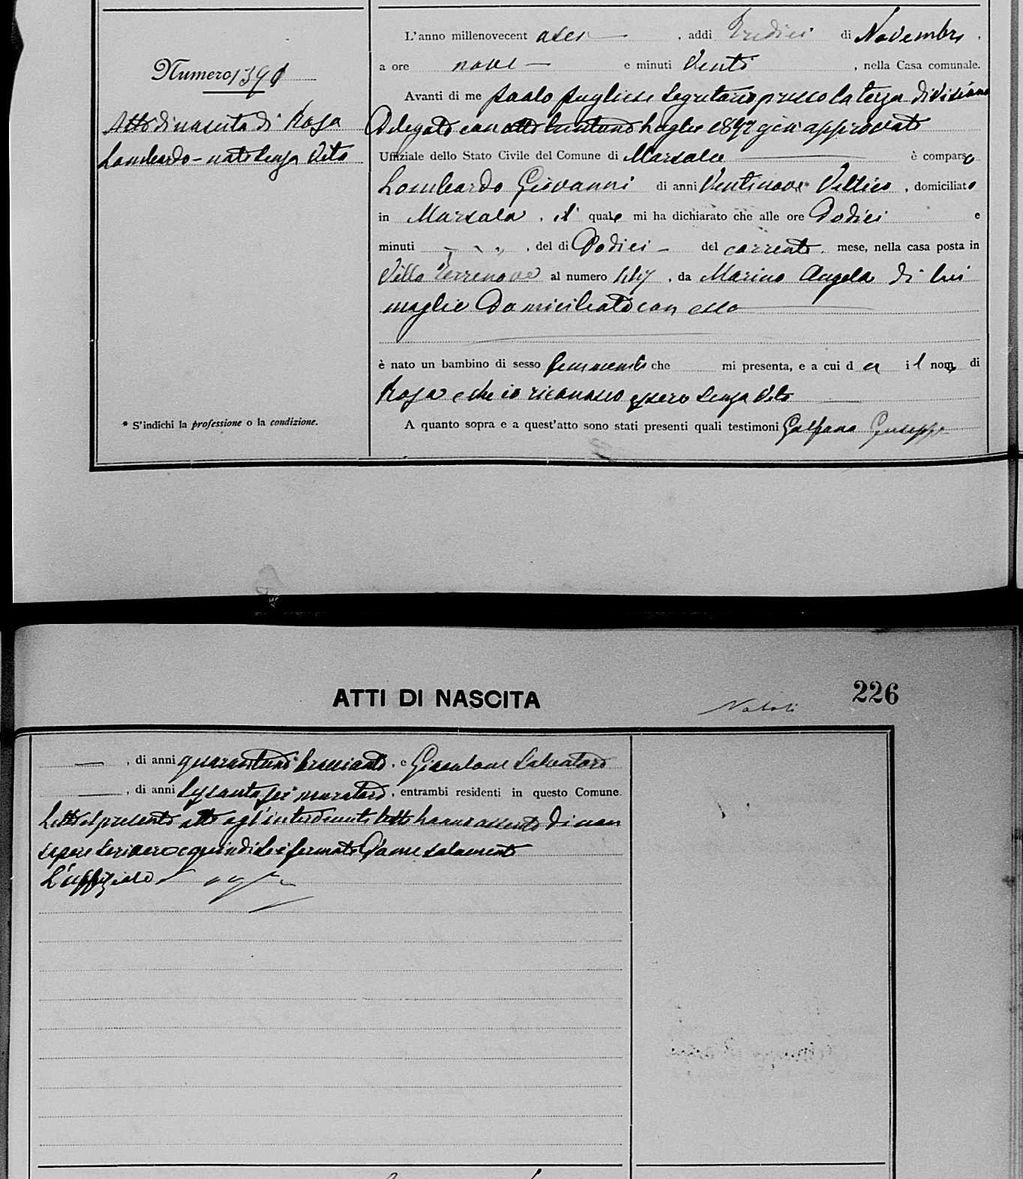 Numero 1391
Atto di nascita di Rosa
Lombardo - nata senza vita
* S'indichi la professione o la condizione.
L'anno millenovecent , addì Tredici di Novembre ,
a ore nove e minuti Venti , nella Casa comunale.
Avanti di me Paolo Pugliese Segretario presso la terza divisione
Delegato con atto luglio 1897 già approvato
Uffiziale dello Stato Civile del Comune di Marsala è comparso
Lombardo Giovanni di anni Ventinove Villico , domiciliato
in Marsala , il quale mi ha dichiarato che alle ore Dodici e
minuti , del dì Dodici del corrente mese, nella casa posta in
Villa Terrenove al numero 447 , da Marino Angela di lui
moglie Domiciliata con esso
è nato un bambino di sesso femminile che mi presenta, e a cui d a il nome di
Rosa e che io riconosco essere senza vita
A quanto sopra e a quest'atto sono stati presenti quali testimoni Galfano Giuseppe
ATTI DI NASCITA
226
, di anni quarantuno bracciante , e Giacalone Salvatore
, di anni Sessantasei muratore , entrambi residenti in questo Comune.
Letto il presente atto agl'intervenuti tutti hanno asserito di non
sapere scrivere e quindi si è firmato da me solamente
L'uffiziale